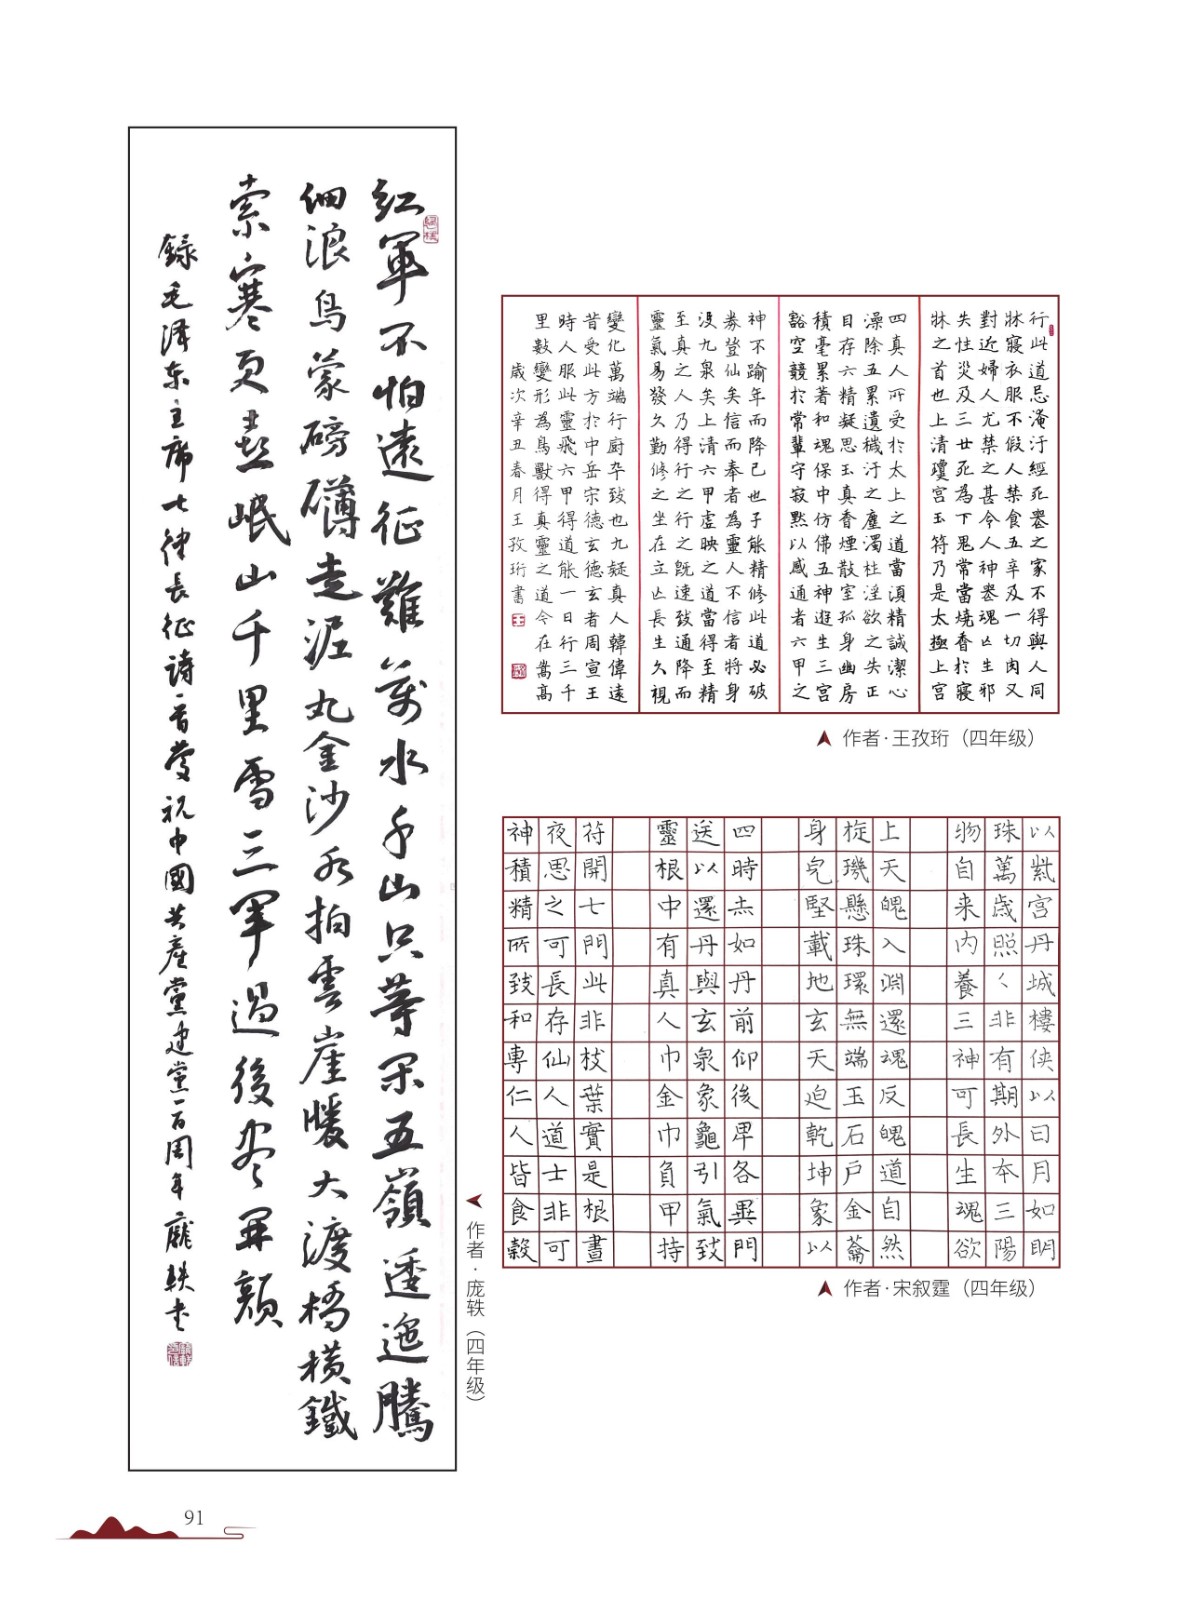 紅軍不怕遠征難萬水千山只等閑五嶺逶迤騰
細浪烏蒙磅礴走泥丸金沙水拍雲崖暖大渡橋横鐵
索寒更喜岷山千里雪三軍過後尽开颜
録毛泽东主席七律長征詩一首慶祝中國共產黨建黨一百周年龐軼书
作者·庞轶（四年级）
行此道忌淹汙經死喪之家不得與人同
牀寢衣服不假人禁食五辛及一切肉又
對近婦人尤禁之甚令人神喪魂亡生邪
失性災及三世死為下鬼常當燒香於寢
牀之首也上清瓊宮玉符乃是太極上宮
四真人所受於太上之道當須精誠潔心
澡除五累遺穢汙之塵濁杜淫欲之失正
目存六精凝思玉真香煙散室孤身幽房
積毫累著和魂保中仿佛五神遊生三宮
豁空競於常輩守寂默以感通者六甲之
神不踰年而降己也子能精修此道必破
券登仙矣信而奉者為靈人不信者將身
没九泉矣上清六甲虛映之道當得至精
至真之人乃得行之行之既速致通降而
靈氣易發久勤修之坐在立亡長生久視
變化萬端行廚卒致也九疑真人韓偉遠
昔受此方於中岳宋德玄德玄者周宣王
時人服此靈飛六甲得道能一日行三千
里數變形為鳥獸得真靈之道今在嵩高
歲次辛丑春月王孜珩書
作者·王孜珩（四年级）
以紫宮丹城樓俠以日月如明
珠萬歲照〻非有期外本三陽
物自来内養三神可長生魂欲
上天魄入淵還魂反魄道自然
旋璣懸珠環無端玉石戶金籥
身完堅載地玄天迫乾坤象以
四時赤如丹前仰後卑各異門
送以還丹與玄泉象龜引氣致
靈根中有真人巾金巾負甲持
符開七門此非枝葉實是根晝
夜思之可長存仙人道士非可
神積精所致和專仁人皆食穀
作者·宋叙霆（四年级）
91